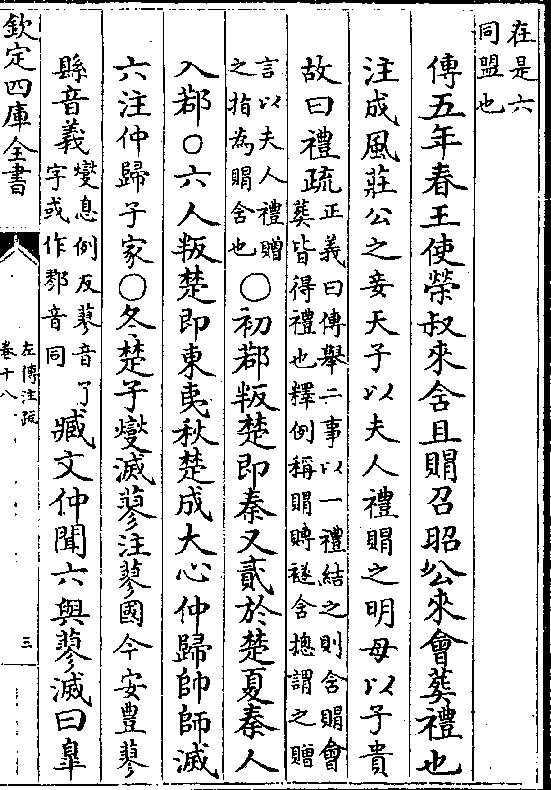 在是六
同盟也
傳五年春王使榮叔來含且賵召昭公來會葬禮也
注成風莊公之妾天子以夫人禮賵之明母以子貴
故曰禮疏正義曰傳舉二事以一禮結之則含賵會
葬皆得禮也釋例稱賵賻襚含摠謂之贈
言以夫人禮贈
之指為賵含也○初鄀叛楚即秦又貳於楚夏秦人
入鄀○六人叛楚即東夷秋楚成大心仲歸帥師滅
六注仲歸子家○冬楚子燮滅蓼注蓼國今安豐蓼
縣音義燮息例反蓼音了
字或作鄝音同臧文仲聞六與蓼滅曰臯
欽定四庫全書
左傳注疏
卷十八
三